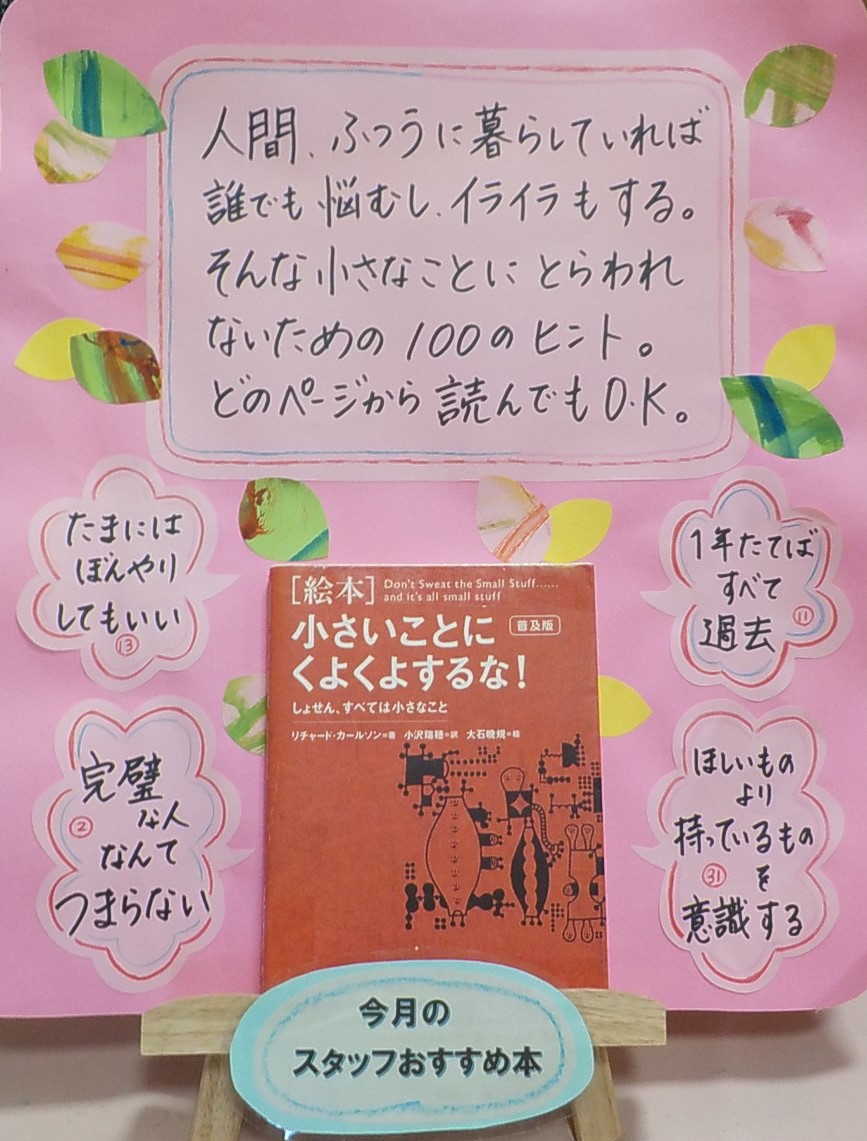 人間、ふつうに暮らしていれば
誰でも悩むし、イライラもする。
そんな小さなことにとらわれ
ないための100のヒント。
どのページから読んでもO.K。
たまには
ぼんやり
してもいい
⑬
1年たてば
すべて
過去
⑪
完璧
な人
②
なんて
つまらない
ほしいもの
より
持っているもの
を
㉛
意識する
[絵本]
Don't Sweat the Small Stuff......
and it's all small stuff
小さいことに
普及版
くよくよするな!
しょせん、すべては小さなこと
リチャード・カールソン=著 小沢瑞穂=訳 大石暁規=絵
今月の
スタッフおすすめ本